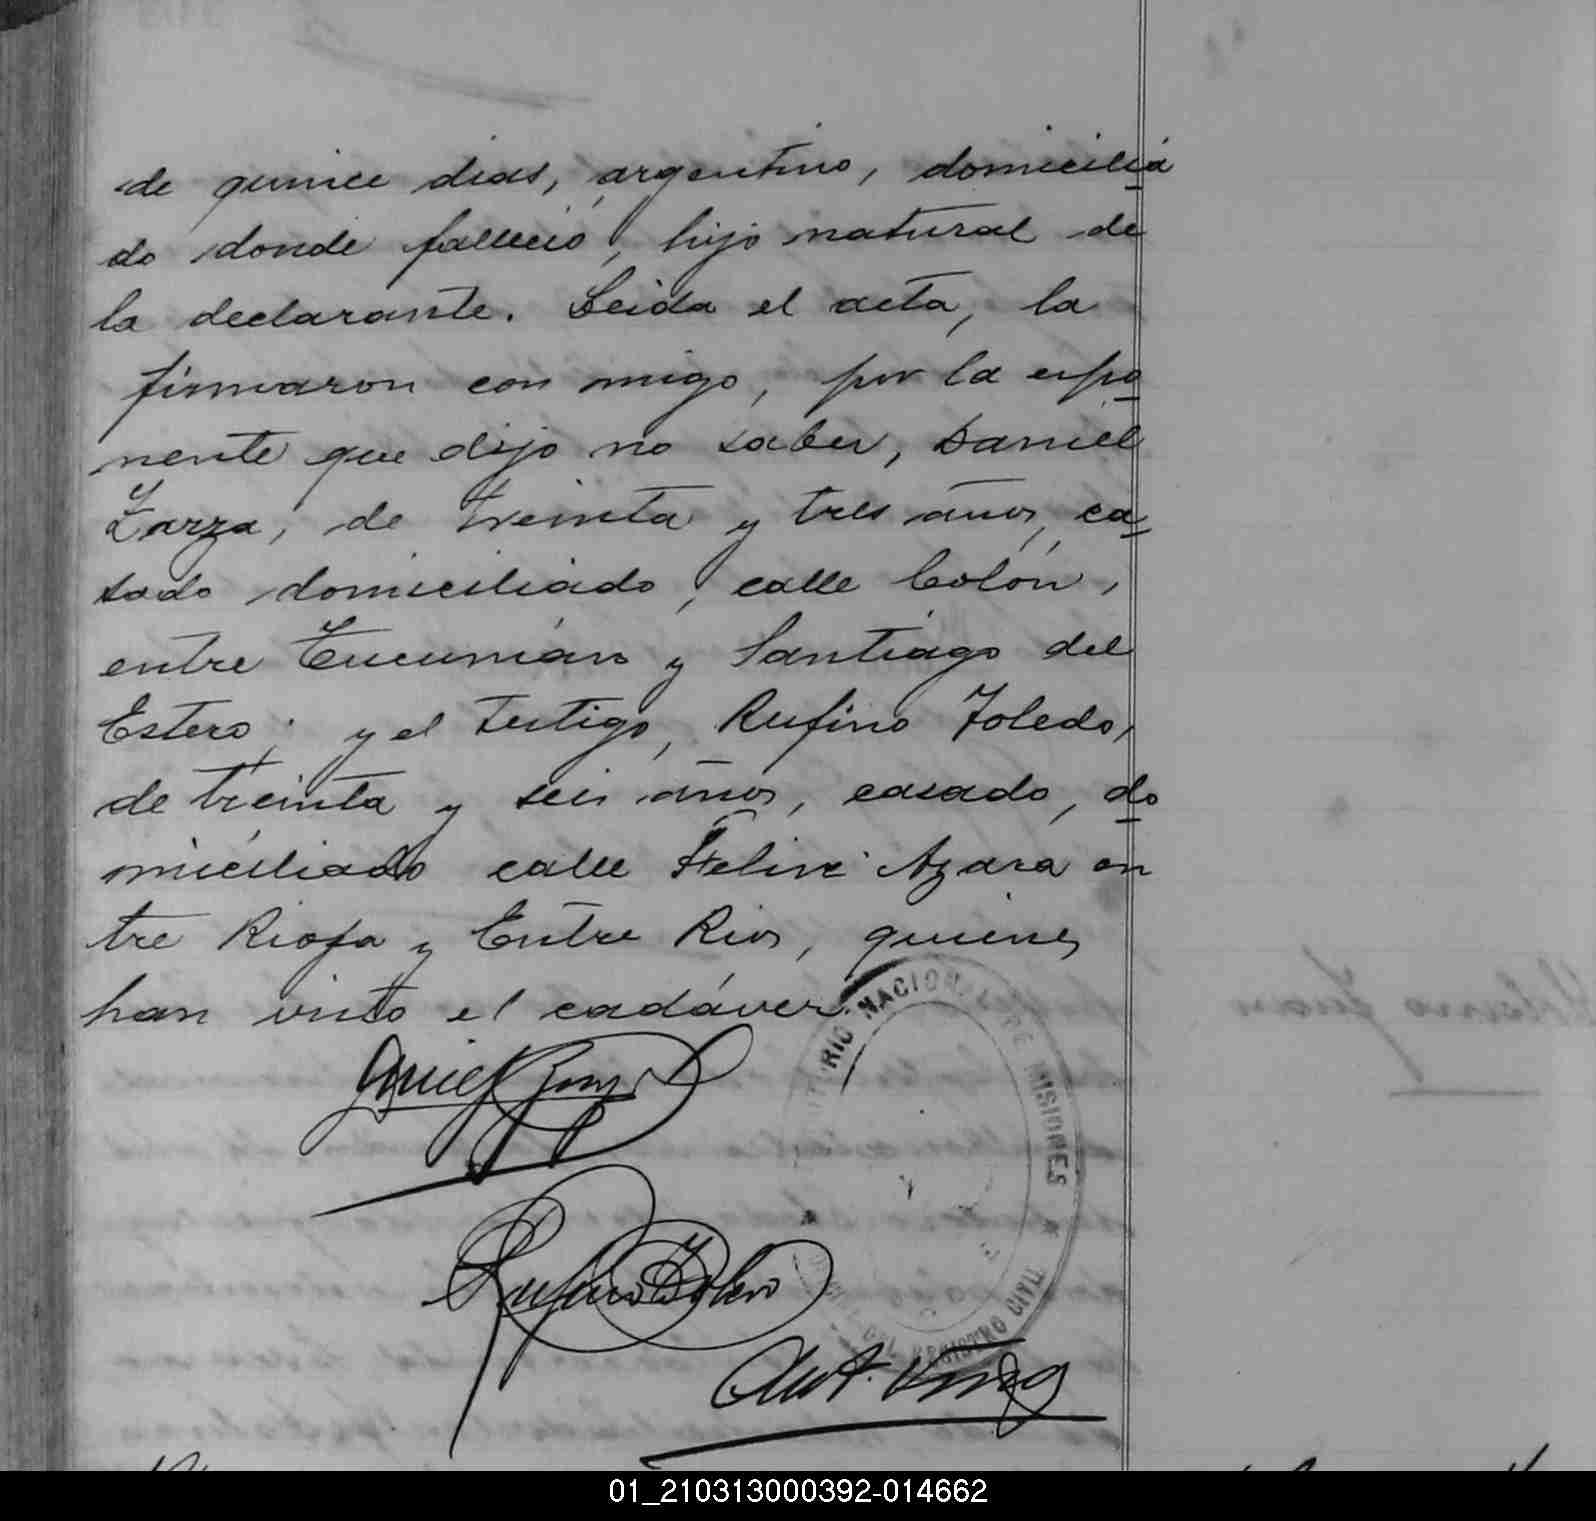 de quince dias, argentino, domicilia
do donde falleció, hijo natural de
la declarante. Leida el acta, la
firmaron con migo, por la expo
nente que dijo no saber, Daniel
Zarza, de treinta y tres años, ca-
sado domiciliado, calle Colón,
entre Tucumán y Santiago del
Estero; y el testigo, Rufino Toledo,
de treinta y seis años, casado, do
miciliado calle Felix Azara en
tre Rioja y Entre Rios, quienes
han visto el cadáver.
Rufino Toledo
NACIONAL DE MISIONES
DEL REGISTRO CIVIL
01_210313000392-014662